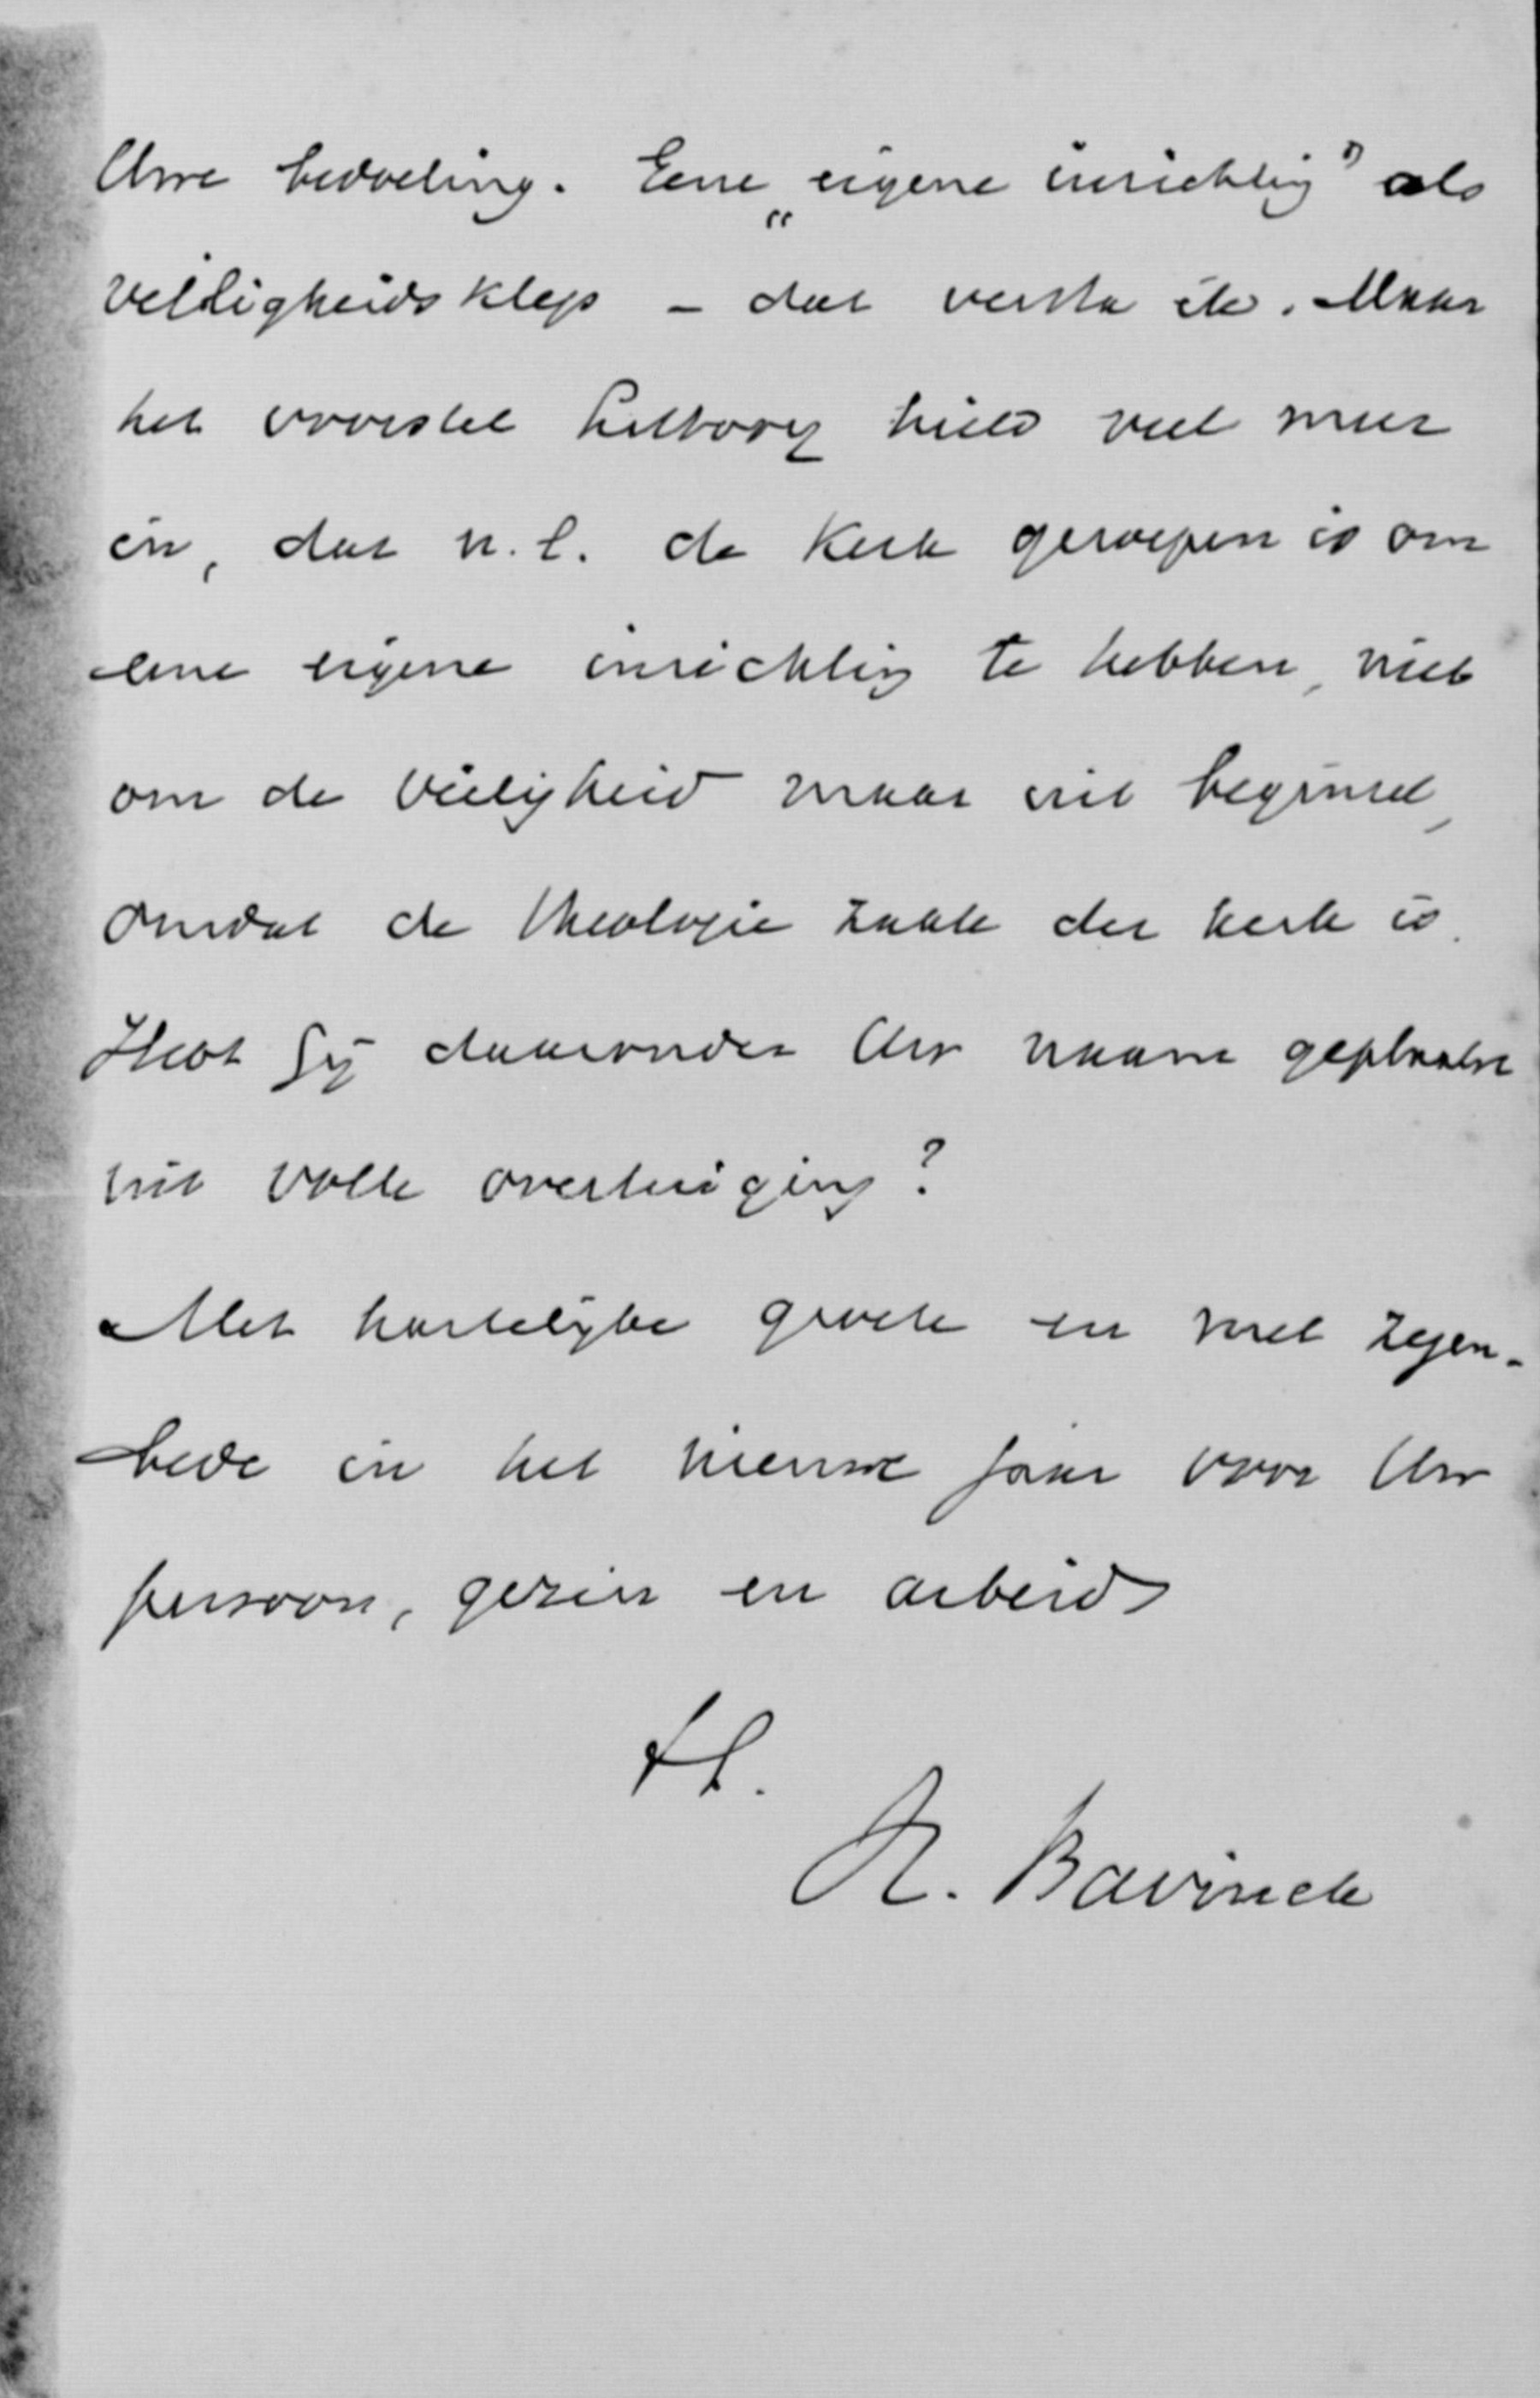 Uwe bedoeling. Eene „eigene inrichting” als
veiligheidsklep - dat versta ik. Maar
het voorstel Littooy hield veel meer
in, dat n.l. de Kerk geroepen is om
eene eigene inrichting te hebben, niet
om de veiligheid maar uit beginsel,
omdat de theologie zaak der kerk is.
Hebt Gij daaronder Uw naam geplaatst
uit volle overtuiging?
Met hartelijke groete en met zegen-
bede in het nieuwe jaar voor Uw
persoon, gezin en arbeid
tt.
H. Bavinck